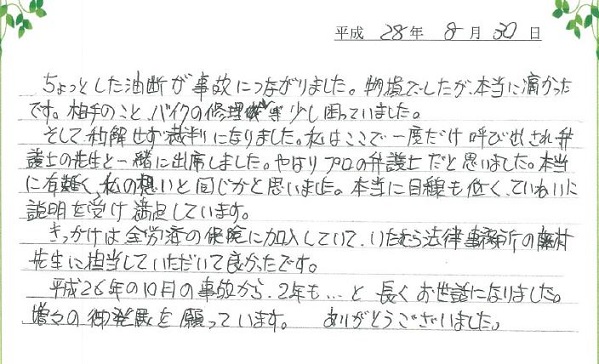 平成 28年 8月 30日
ちょっとした油断が事故につながりました。物損でしたが、本当に痛かった
です。相手のこと、バイクの修理等少し困っていました。
そして和解出ず裁判になりました。私はここで一度だけ呼び出され弁
護士の先生と一緒に出席しました。やはりプロの弁護士だと思いました。本当
に有難く、私の想いと同じかと思いました。本当に目線も低く、ていねいに
説明を受け満足しています。
きっかけは全労済の保険に加入していて、いたむら法律事務所の
先生に担当していただいて良かったです。
平成26年の10月の事故から、2年も…と長くお世話になりました。
増々の御発展を願っています。 ありがとうございました。